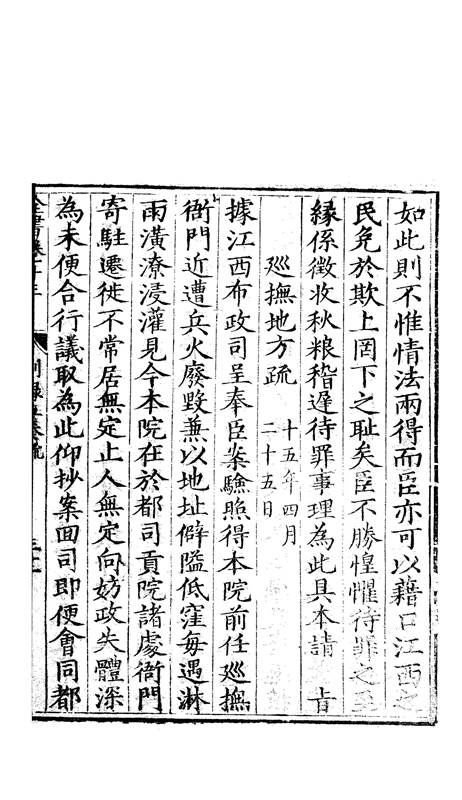 如此則不惟情法兩得而臣亦可以藉口江西之
民免於欺上罔下之耻矣臣不勝惶懼待罪之至
縁係徵收秋粮稽遲待罪事理為此具本請　旨
廵撫地方疏　十五年四月
二十五日
據江西布政司呈奉臣案驗照得本院前任廵撫
衙門近遭兵火廢毀兼以地址僻隘低窪每遇淋
雨潢潦浸灌見今本院在於都司貢院諸處衙門
寄駐遷徙不常居無定止人無定向妨政失體深
為未便合行議取為此仰抄案回司即便會同都